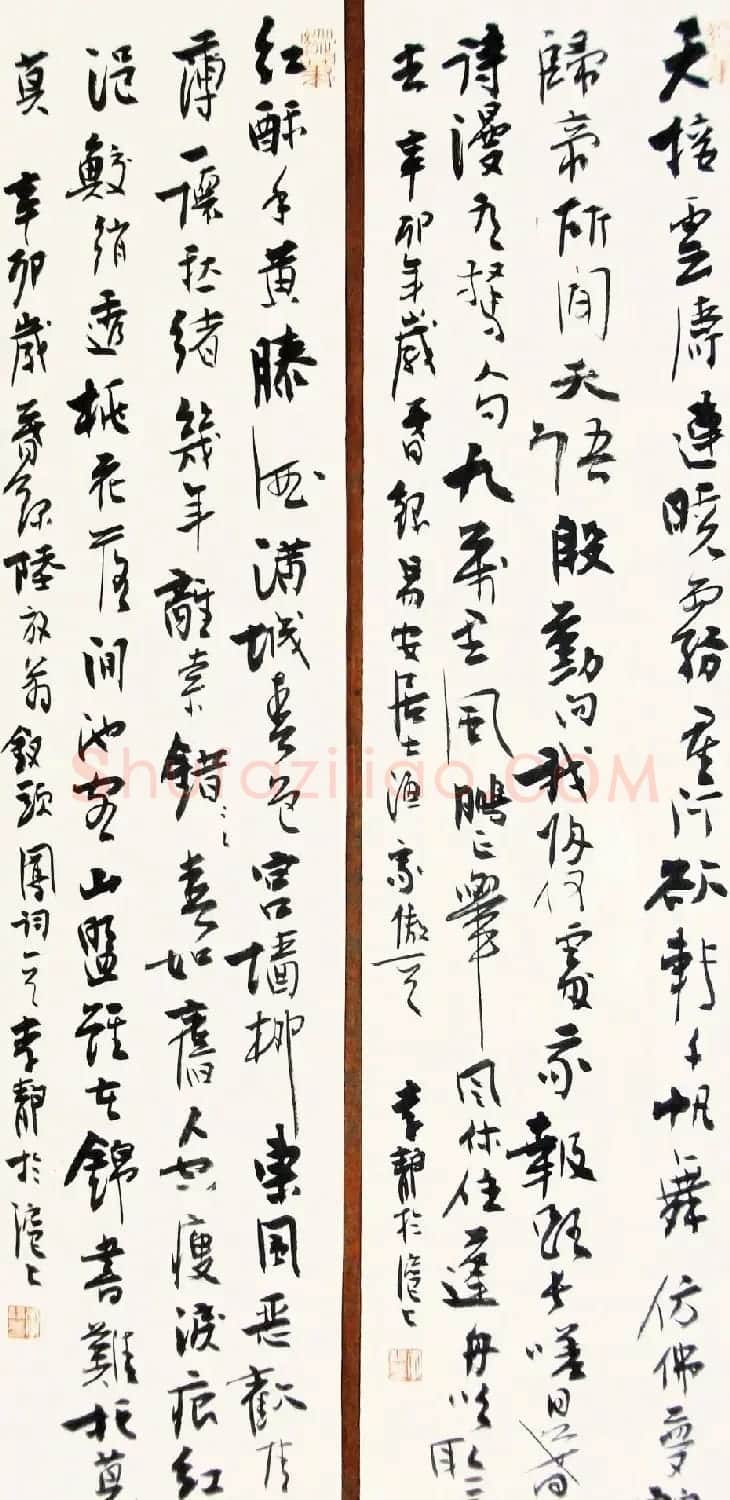 天接雲濤連曉霧星河欲轉千帆舞仿佛夢魂
歸帝所聞天語殷勤問我歸何處我報路長嗟日暮
詩漫有驚人句九萬里風鵬正舉風休住蓬舟吹取三
去 辛卯年歲暮錄易安居士漁家傲一首 李靜於滬上
紅酥手黃縢酒滿城春色宮墻柳東風惡歡情
薄一懷愁緒幾年離索錯〻〻春如舊人空瘦淚痕紅
浥鮫綃透桃花落閒池閣山盟雖在錦書難托莫
莫 辛卯歲暮錄陸放翁釵頭鳳詞一首 李靜於滬上
Shufaziliao.COM